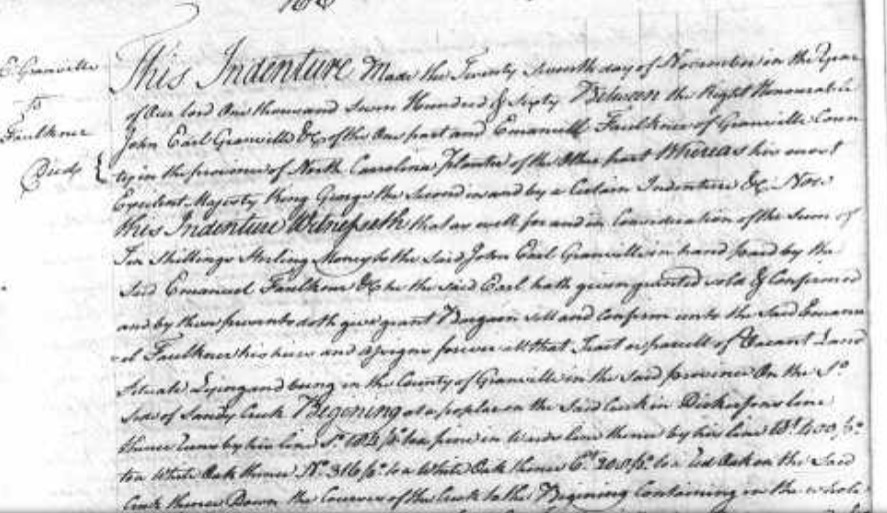 E. Granville
To
Faulkner
Deed
This Indenture Made the Twenty Seventh day of November in the Year
of Our Lord One thousand Seven Hundred & Sixty Between the Right Honourable
John Earl Granville &c of the One part and Emanuell Faulkner of Granville Coun
ty in the province of North Carrolina Planter of the Other part Whereas his most
Excelent Majesty King George the Second in and by a Certain Indenture &c Now
this Indenture Witnesseth that as well for and in Consideration of the Sum of
Ten Shillings Sterling Money to the said John Earl Granville in hand paid by the
Said Emanuel Faulkner &c he the said Earl hath given granted sold & Confirmed
and by these presents doth give grant Bargain sell and Confirm unto the Said Emanu
el Faulkner his heirs and assigns forever all that Tract or parcell of Vacant Land
Situate Lying and being in the County of Granville in the said province On the So
Side of Sandy Creek Begoning at a poplar on the Said Creek in Dickersons line
thence Runs by his line So. 184 po. to a pine in line thence by his line Wt. 400 po.
to a White Oak thence No. 316 po. to a White Oak thence Et. 200 po. to a Red Oak on the Said
Creek thence Down the Courses of the Creek to the Begining Containing in the whole